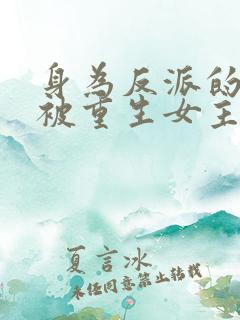 身為反派的
被重生女主
夏言冰
未经同意禁止转载